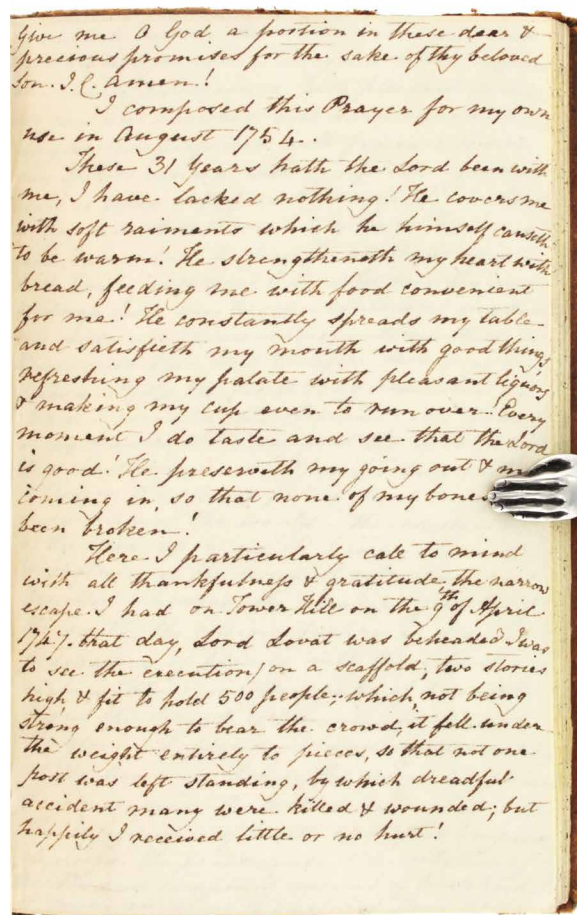 Give me O God a portion in these dear &
precious promises for the sake of thy beloved
Son. J. C. Amen!
I composed this Prayer for my own
use in August 1754.
These 31 Years hath the Lord been with
me, I have lacked nothing! He covers me
with soft raiments which he himself causeth
to be warm! He strengtheneth my heart with
bread, feeding me with food convenient
for me! He constantly spreads my table
and satisfieth my mouth with good things,
refreshing my palate with pleasant liquors
& making my cup even to run over! Every
moment I do taste and see that the Lord
is good! He preserveth my going out &
coming in, so that none of my bones
been broken!
Here I particularly call to mind
with all thankfulness & gratitude, the narrow
escape I had on Tower Hill on the 9th of April
1747. that day, Lord Lovat was beheaded I was
to see the execution, on a scaffold, two stories
high & fit to hold 500 people; which, not being
strong enough to bear the crowd, it fell under
the weight entirely to pieces, so that not one
post was left standing, by which dreadful
accident many were killed & wounded; but
happily I received little or no hurt!